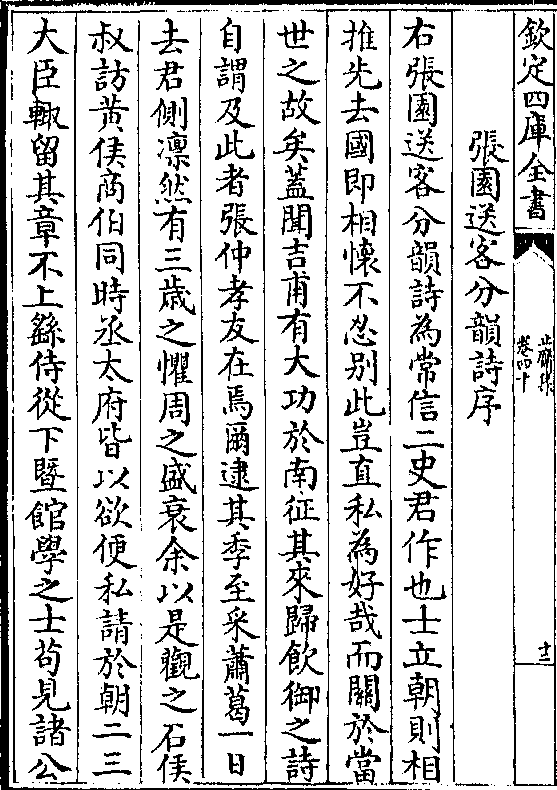 欽定四庫全書
止齋集
卷四十
十二
張園送客分韻詩序
右張園送客分韻詩為常信二史君作也士立朝則相
推先去國即相懷不忍别此豈直私為好哉而關於當
世之故矣蓋聞吉甫有大功於南征其來歸飲御之詩
自謂及此者張仲孝友在焉爾逮其季至采蕭葛一日
去君側凛然有三歳之懼周之盛衰余以是觀之石侯
叔訪黄侯商伯同時丞太府皆以欲便私請於朝二三
大臣輙留其章不上繇侍從下暨館學之士茍見諸公